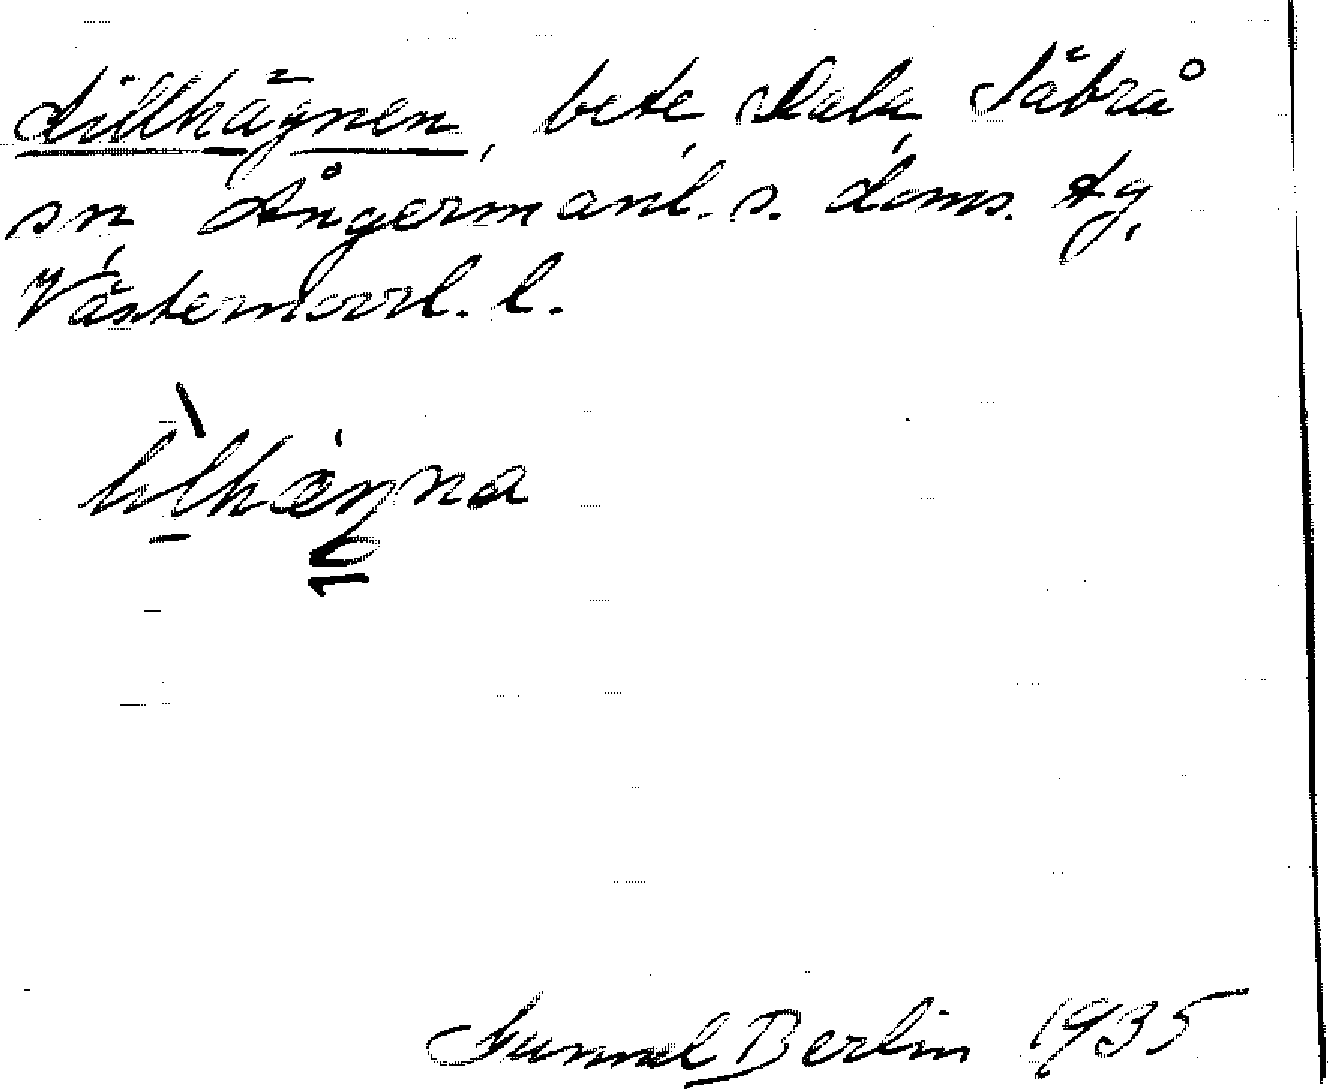 Lillhägnen, bete, Dala, Säbrå
sn, Ångermanl. s. doms. tg,
Västernorrl. l.
lilhægna
Gunnel Berlin 1935